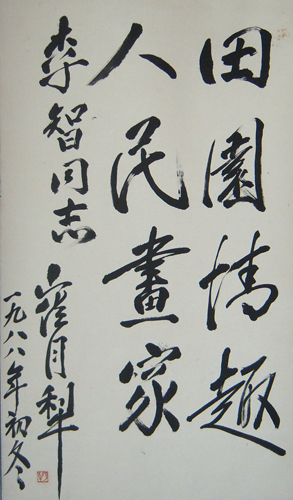 田園情趣
人民畫家
李智同志
崔月犁
一九八八年初冬